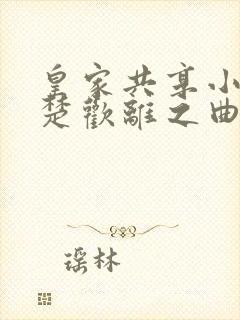 皇家共享小
楚歡離之曲
瑶林